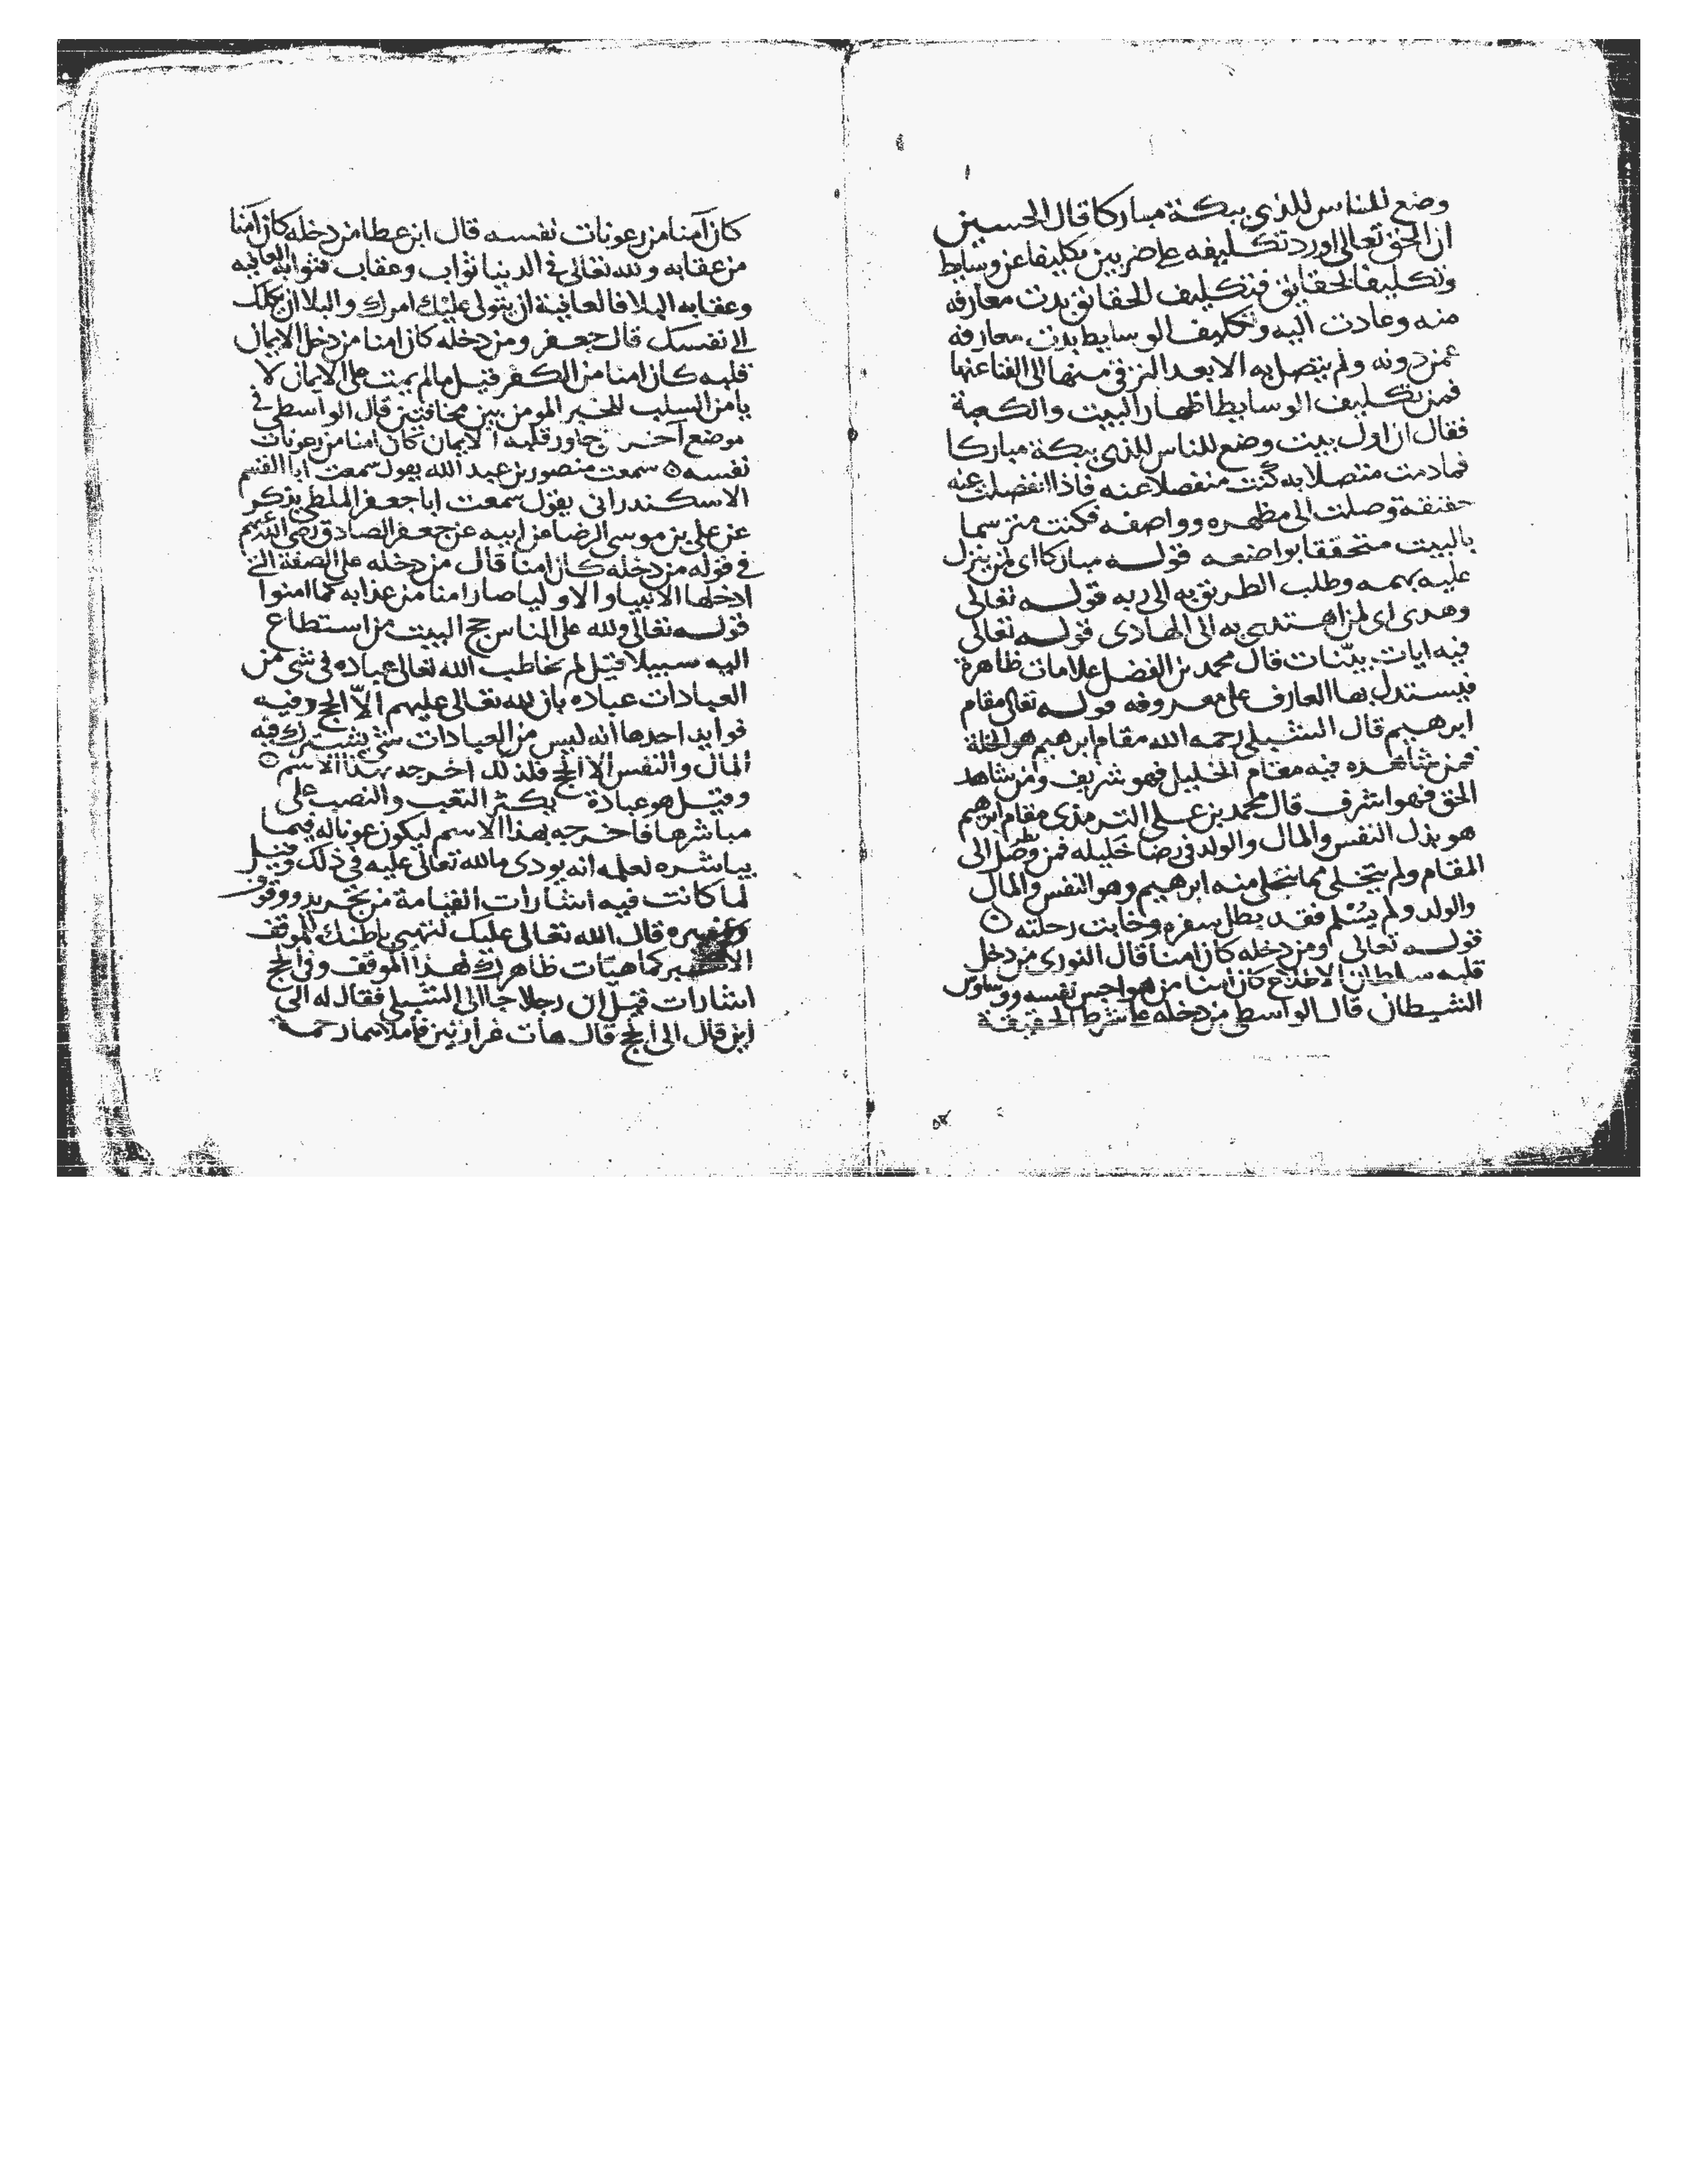 وضع للناس للذي ببكة مباركا قال الحسين
ان الحق تعالى اورد تكليفه على ضربين تكليفا عن وسايط
وتكليفا لحقايق فتكليف الحقايق بدت معارفه
منه وعادت اليه وتكليف الوسايط بدت معارفه
عمن دونه ولم يتصل به الا بعد الترقي منها الى الفنا عنها
فمن تكليف الوسايط اظهار البيت والكعبة
فقال ان اول بيت وضع للناس للذي ببكة مباركا
فمادمت متصلا به كنت منفصلا عنه فاذا انفصلت عنه
حقيقة وصلت الى مظهره وواضعه فكنت مترسما
بالبيت متحققا بواضعه قوله مباركا اى لمن ينزل
عليه بهمه وطلب الطريق به الى ربه قوله تعالى
وهدى اى لمن اهتدى به الى الهادى قوله تعالى
فيه ايات بينات قال محمد بن الفضل علامات ظاهرة
فيستدل بها العارف على معروفه قوله تعالى مقام
ابرهيم قال الشبلى رحمه الله مقام ابرهيم هو الخلة
فمن شاهده فيه مقام الخليل فهو شريف ومن شاهد
الحق فهو اشرف قال محمد بن على الترمذى مقام ابرهيم
هو بذل النفس والمال والولد فى رضا خليله فمن وصل الى
المقام ولم يتخلى مما تخلى منه ابرهيم وهو النفس والمال
والولد ولم يسلم فقد بطل سفره وخابت رحلته
قوله تعالى ومن دخله كان امنا قال النورى من دخل
قلبه سلطان الاطلاع كان امنا من هواجس نفسه ووساوس
الشيطان قال الواسطى من دخله على شرط الحقيقة
كان آمنا من رعونات نفسه قال ابن عطا من دخله كان آمنا
من عقابه ولله تعالى فى الدنيا ثواب وعقاب فثوابه العافيه
وعقابه البلا فالعافية ان يتولى عليك امرك والبلا ان يكلك
الى نفسك قال جعفر ومن دخله كان امنا من دخل الايمان
قلبه كان امنا من الكفر قيل مالم يمت على الايمان لا
يامن السلب للخبر المومن بين مخافتين قال الواسطى فى
موضع آخر جاور قلبه الايمان كان امنا من رعونات
نفسه سمعت منصور بن عبد الله يقول سمعت ابا القسم
الاسكندرانى يقول سمعت ابا جعفر الملطى يذكر
عن على بن موسى الرضا عن ابيه عن جعفر الصادق رضى الله عنهم
فى قوله من دخله كان امنا قال من دخله على الصفة التى
ادخلها الانبيا والاوليا صار امنا من عذابه كما امنوا
قوله تعالى ولله على الناس حج البيت من استطاع
اليه سبيلا قيل لم يخاطب الله تعالى عباده فى شى من
العبادات عباده بان لله تعالى عليهم الا الحج وفيه
فوايد احدها انه ليس من العبادات شى يشترك فيه
المال والنفس الا الحج فلذلك اخرجه بهذا الاسم
وقيل هو عبادة يكثر التعب والنصب على
مباشرها فاخرجه بهذا الاسم ليكون عونا له فيما
يباشره لعلمه انه يودى ما لله تعالى عليه فى ذلك وقيل
لما كانت فيه اشارات القيامة من تجريد ووقوف
وغيره قال الله تعالى عليك لتهيى باطنك للموقف
الاكبر كما هيات ظاهرك لهذا الموقف وفى الحج
اشارات قيل ان رجلا جا الى الشبلى فقال له الى
اين قال الى الحج قال هات غرارتين فاملاهما رحمة